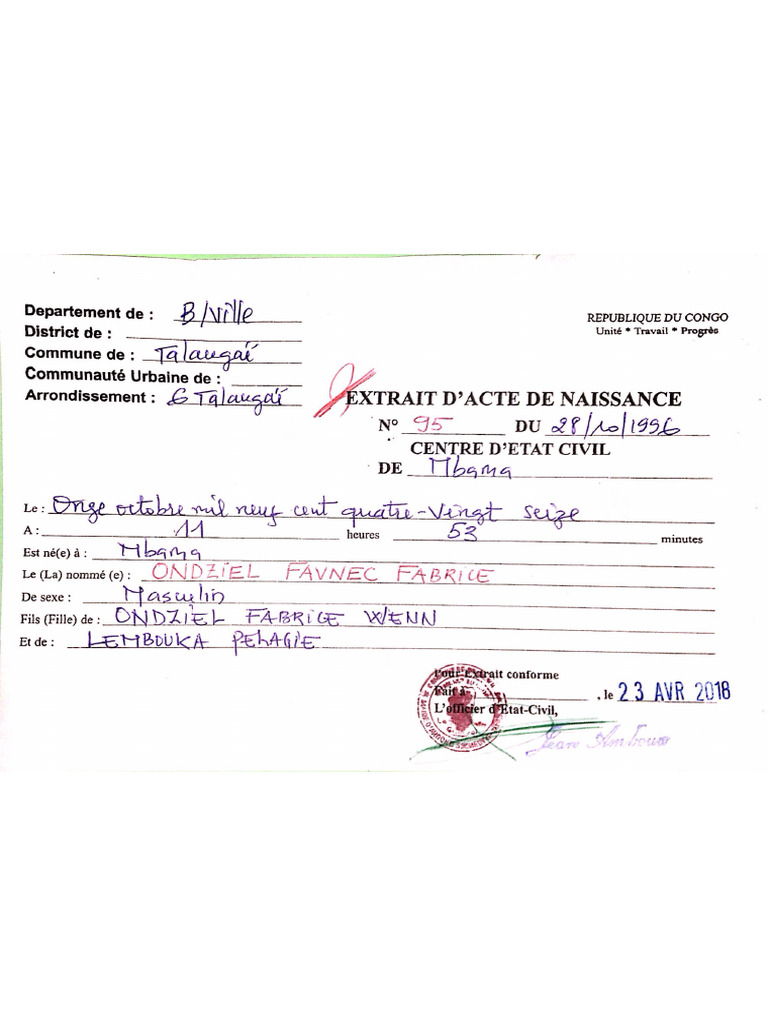 Departement de : B/ville
District de :
Commune de : Talangaï
Communauté Urbaine de :
Arrondissement : 6 Talangaï
REPUBLIQUE DU CONGO
Unité * Travail * Progrès
EXTRAIT D'ACTE DE NAISSANCE
N° 95 DU 28/10/1996
CENTRE D'ETAT CIVIL
DE Mbama
Le : Onze octobre mil neuf cent quatre-Vingt seize
A : 11 heures 53 minutes
Est né(e) à : Mbama
Le (La) nommé (e) : ONDZIEL FAVNEC FABRICE
De sexe : Masculin
Fils (Fille) de : ONDZIEL FABRICE WENN
Et de : LEMBOUKA PELAGIE
Pour Extrait conforme
Fait à , le 23 AVR 2018
L'officier d'Etat-Civil,
Jean